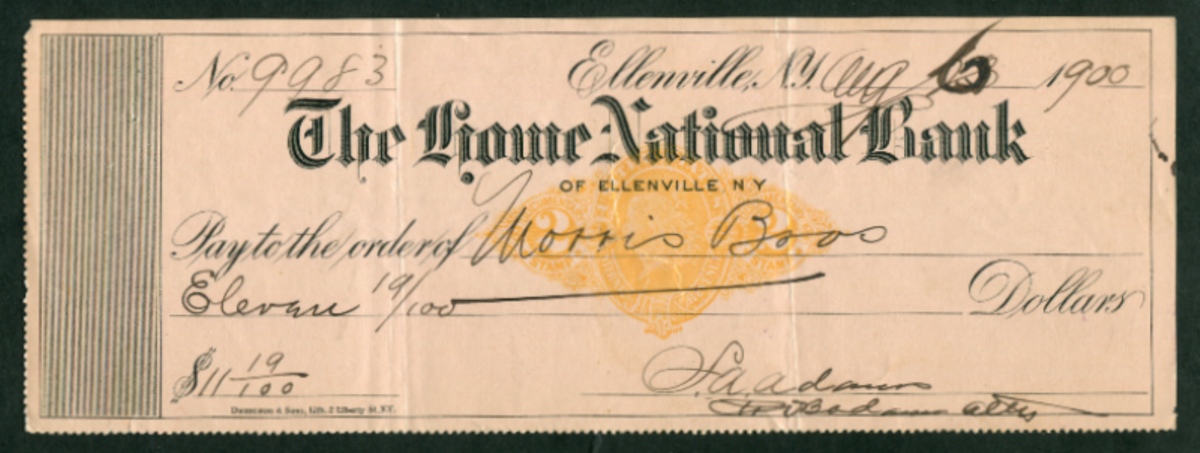 No. 9983 Ellenville, N.Y. Aug 6 1900
The Home National Bank
OF ELLENVILLE N Y
Pay to the order of Morris Boos
2 2
Eleven 19/100 Dollars
$11 19/100
S. A. Adams
Adams atty
Dennison & Sons, Lith. 2 Liberty St. N.Y.